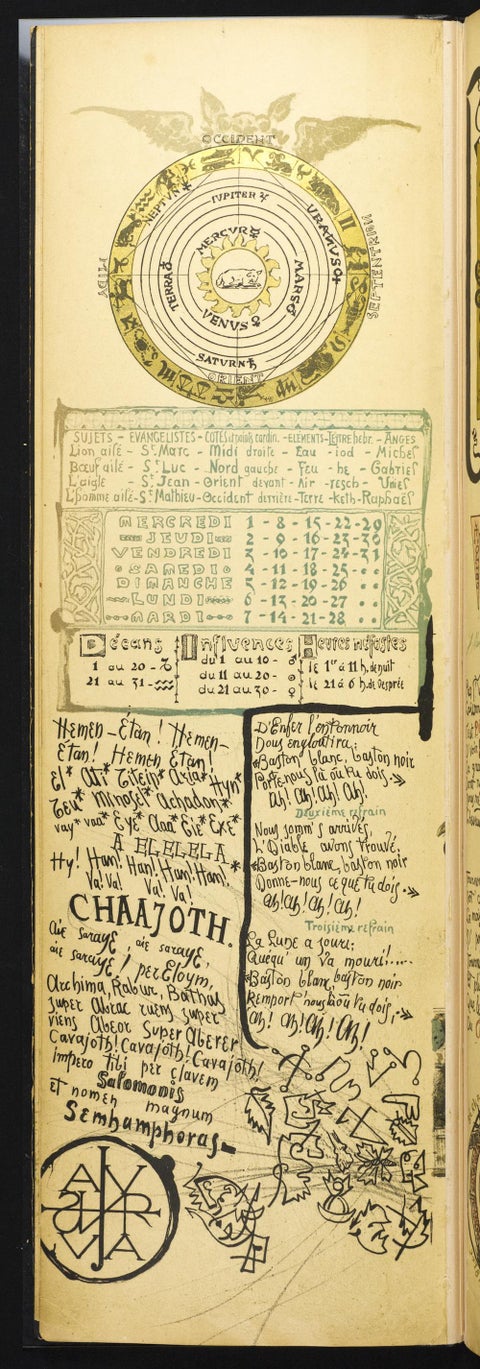 OCCIDENT
NEPTUN ♆
IUPITER ♃
URANUS ♅
MERCUR ☿
TERRA ♁
MARS ♂
VENUS ♀
SATURN ♄
MIDI
SEPTENTRION
ORIENT
SUJETS - EVANGELISTES - COTES et points cardin. - ELEMENTS - LETTRE hebr. - ANGES
Lion ailé - St Marc - Midi droite - Eau - iod - Michel
Bœuf ailé - St Luc - Nord gauche - Feu - he - Gabriel
L'aigle - St Jean - Orient devant - Air - resch - Uriel
L'homme ailé - St Mathieu - Occident derrière - Terre - keth - Raphaël
MERCREDI 1 - 8 - 15 - 22 - 29
JEUDI 2 - 9 - 16 - 23 - 30
VENDREDI 3 - 10 - 17 - 24 - 31
SAMEDI 4 - 11 - 18 - 25
DIMANCHE 5 - 12 - 19 - 26
LUNDI 6 - 13 - 20 - 27
MARDI 7 - 14 - 21 - 28
Décans
1 au 20 - ♑
21 au 31 - ♒
Influences
du 1 au 10 - ♂
du 11 au 20 - ☉
du 21 au 30 - ♀
Heures néfastes
le 1er à 11 h. de nuit
le 21 à 6 h. de vesprée
Hemen-Etan! Hemen-
Etan! Hemen Etan!
El* Ati* Titeip* Azia* Hyn*
Teu* Minosel* Achadon*
vay* vaa* Eye* Aaa* Eie* Exe*
A ELELELA*
Hy! Han! Han! Han! Han!
Va! Va! Va! Va!
CHAAJOTH.
aie saraye, aie saraye,
aie saraye! per Eloym,
Archima, Rabur, Bathas
super Abrac ruens super
viens Abeor Super Aberer
Cavajoth! Cavajoth! Cavajoth!
impero tibi per clavem
Salomonis
et nomen magnum
Semhamphoras
D'Enfer l'entonnoir
Nous engloutira:
Baston blanc, baston noir
Porte-nous là où tu dois
Ah! Ah! Ah! Ah!
Deuxième refrain
Nous somm's arrivés,
L'Diable avons trouvé,
Baston blanc, baston noir
Donne-nous ce que tu dois
Ah! Ah! Ah! Ah!
Troisième refrain
La Lune a joui;
Quéqu'un va mouri!.....
Baston blanc, baston noir
Remport'nous là où tu dois,
Ah! Ah! Ah! Ah!